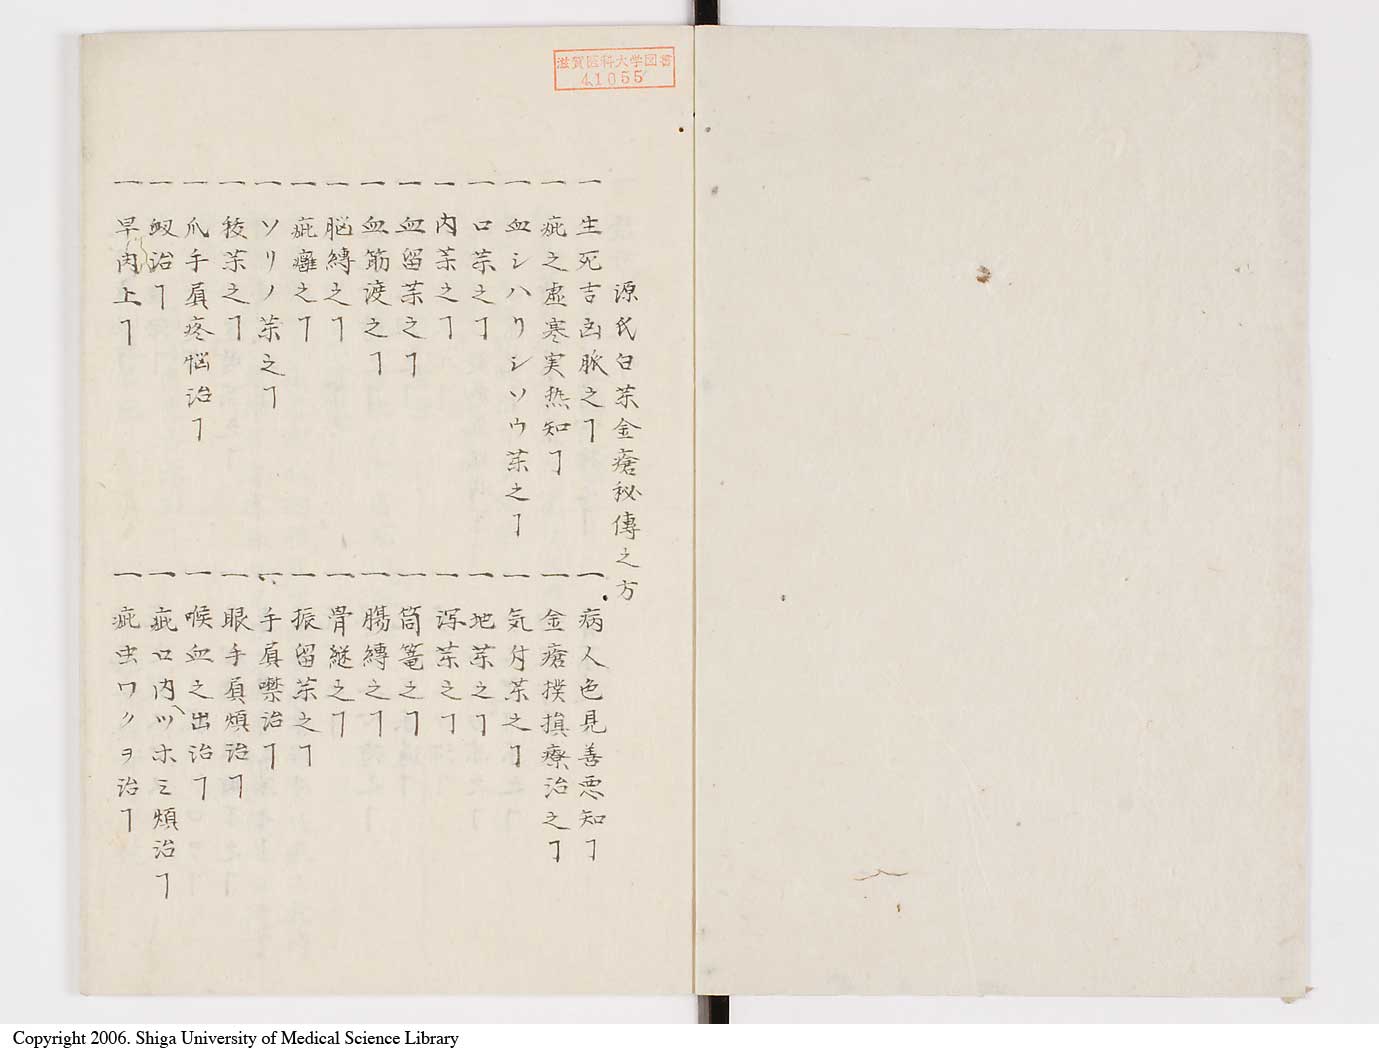 滋賀医科大学図書
41055
源氏白薬金瘡秘傳之方
一 生死吉凶脈之ヿ
一 病人色見善悪知ヿ
一 疵之虚寒実熱知ヿ
一 金瘡撲損療治之ヿ
一 血シハリシソウ薬之ヿ
一 気付薬之ヿ
一 口薬之ヿ
一 地薬之ヿ
一 内薬之ヿ
一 瀉薬之ヿ
一 血留薬之ヿ
一 筒篭之ヿ
一 血筋渡之ヿ
一 腸縛之ヿ
一 脳縛之ヿ
一 骨継之ヿ
一 疵癰之ヿ
一 振留薬之ヿ
一 ソリノ薬之ヿ
一 手負噤治ヿ
一 薬之ヿ
一 眼手負煩治ヿ
一 爪手負疼悩治ヿ
一 喉血之出治ヿ
一 治ヿ
一 疵口内ヘツホミ煩治ヿ
一 早肉上ヿ
一 疵虫ワクヲ治ヿ
Copyright 2006. Shiga University of Medical Science Library